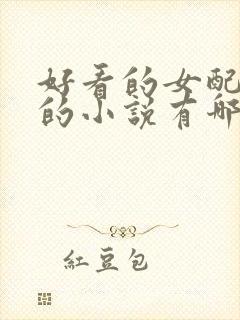 好看的女配
的小說有哪
紅豆包